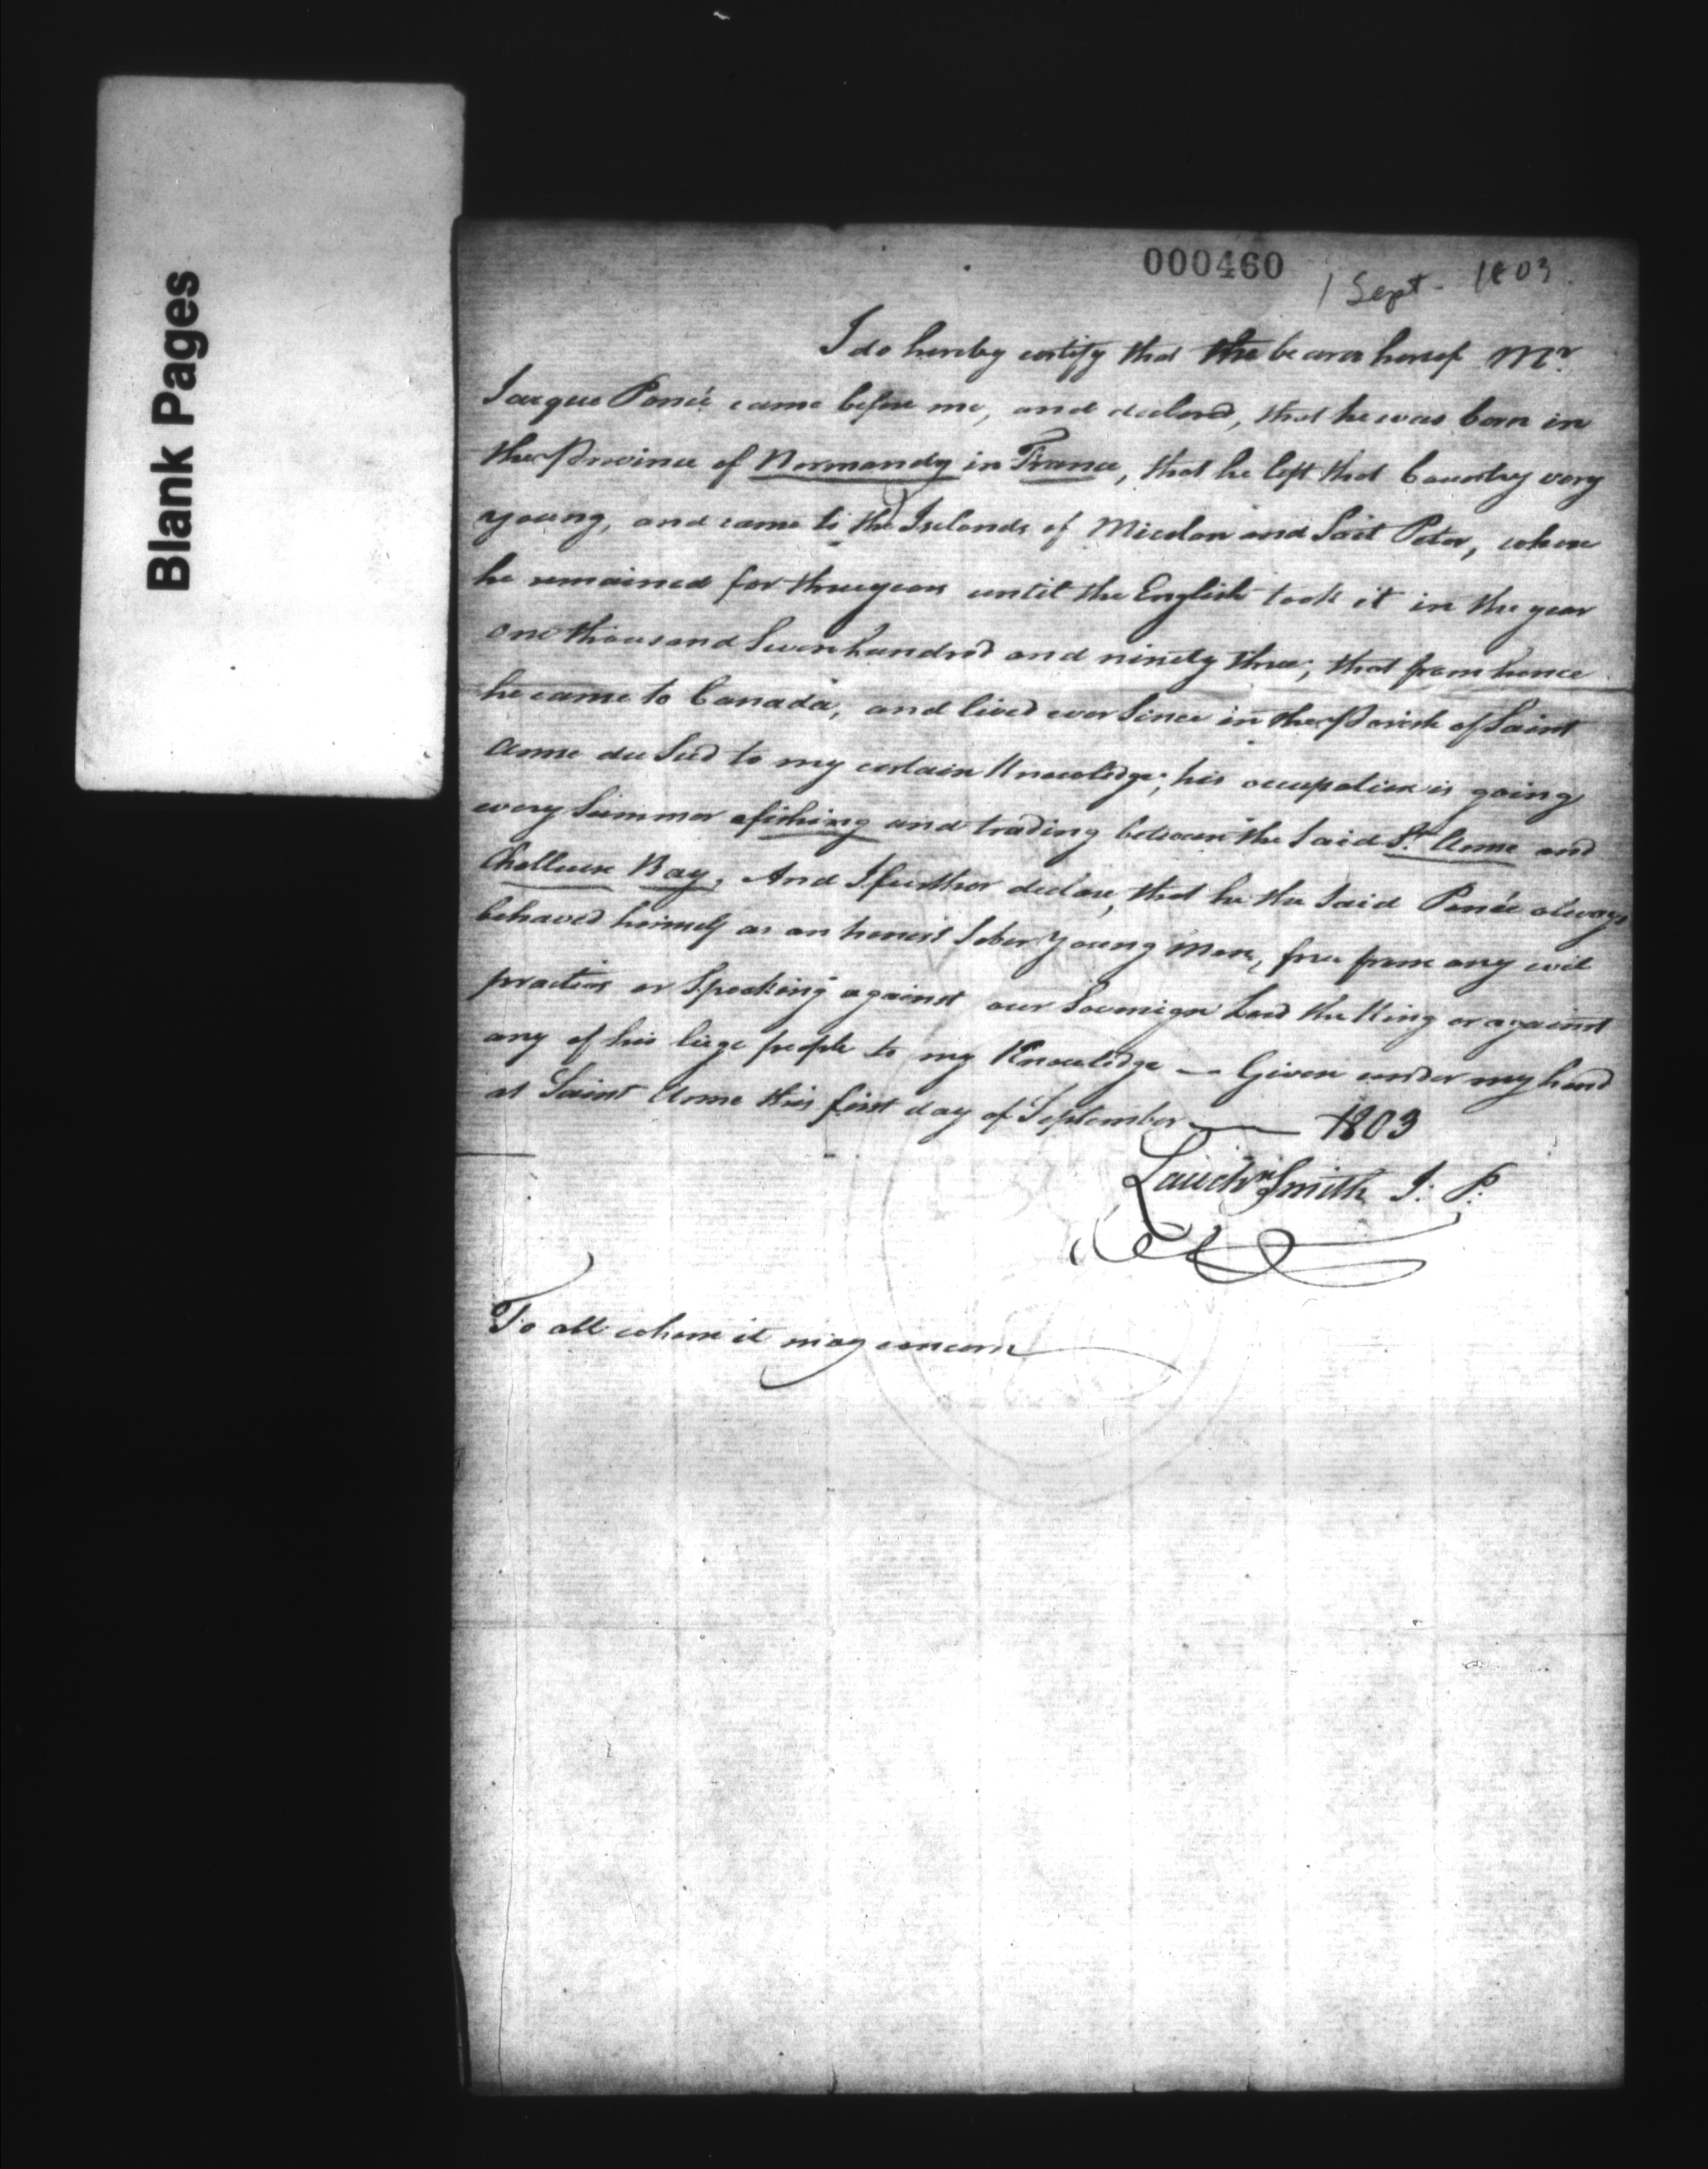 Blank Pages
000460
1 Sept - 1803
I do hereby certify that the bearer hereof Mr.
Jacque Poneé came before me, and declared, that he was born in
the Province of Normandy in France, that he left that Country very
young, and came to the Iselands of Micelon and Sait Peter, where
he remained for three years until the English took it in the year
one thousand Seven hundred and ninety three; that from hence
he came to Canada, and lived ever Since in the Parish of Saint
Anne du Sud to my certain Knowledge; his occupation is going
every Summer afishing and trading between the Said St. Anne and
Challeure Bay, And I further declare, that he the Said Poneé always
behaved himself as an honest Sober Young Man, free from any evil
practice or Speaking against our Sovereign Lord the King or against
any of his liege people to my Knowledge — Given under my hand
at Saint Anne this first day of September — 1803
Lauchn Smith J. P.
To all whom it may concern